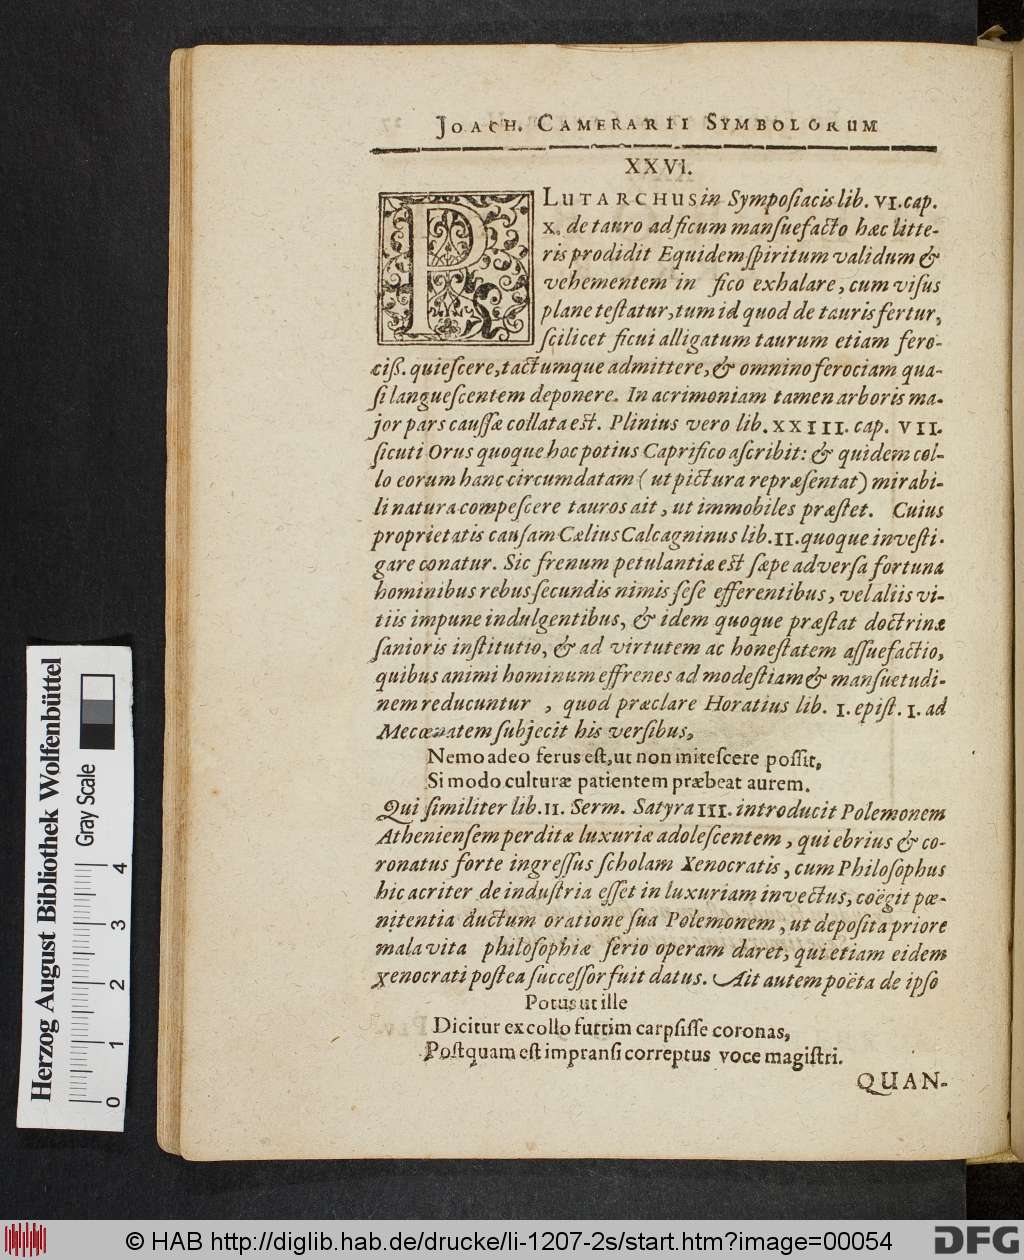 JOACH. CAMERARII SYMBOLORUM
XXVI.
PLUTARCHUS in Symposiacis lib. VI. cap.
X. de tauro ad ficum mansuefacto hæc litte-
ris prodidit Equidem spiritum validum &
vehementem in fico exhalare, cum visus
plane testatur, tum id quod de tauris fertur,
scilicet ficui alligatum taurum etiam fero-
ciß. quiescere, tactumque admittere, & omnino ferociam qua-
si languescentem deponere. In acrimoniam tamen arboris ma-
jor pars caussæ collata est. Plinius vero lib. XXIII. cap. VII.
sicuti Orus quoque hoc potius Caprifico ascribit: & quidem col-
lo eorum hanc circumdatam (ut pictura repræsentat) mirabi-
li natura compescere tauros ait, ut immobiles præstet. Cuius
proprietatis causam Cælius Calcagninus lib. II. quoque investi-
gare conatur. Sic frenum petulantiæ est sæpe adversa fortuna
hominibus rebus secundis nimis sese efferentibus, vel aliis vi-
tiis impune indulgentibus, & idem quoque præstat doctrinæ
sanioris institutio, & ad virtutem ac honestatem assuefactio,
quibus animi hominum effrenes ad modestiam & mansuetudi-
nem reducuntur, quod præclare Horatius lib. I. epist. I. ad
Mecœnatem subjecit his versibus,
Nemo adeo ferus est, ut non mitescere possit,
Si modo culturæ patientem præbeat aurem.
Qui similiter lib. II. Serm. Satyra III. introducit Polemonem
Atheniensem perditæ luxuriæ adolescentem, qui ebrius & co-
ronatus forte ingressus scholam Xenocratis, cum Philosophus
hic acriter de industria esset in luxuriam invectus, coëgit pœ-
nitentia ductum oratione sua Polemonem, ut deposita priore
mala vita philosophiæ serio operam daret, qui etiam eidem
Xenocrati postea successor fuit datus. Ait autem poëta de ipso
Potus ut ille
Dicitur ex collo furtim carpsisse coronas,
Postquam est impransi correptus voce magistri.
QUAN-
Herzog August Bibliothek Wolfenbüttel
Gray Scale
0 1 2 3 4
© HAB http://diglib.hab.de/drucke/li-1207-2s/start.htm?image=00054
DFG